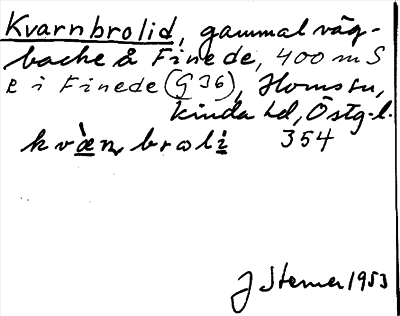 Kvarnbrolid, gammal väg-
backe å Finede, 400 m S
e i Finede (G 36), Homstu,
Kinda hd, Östg.l.
kvæ̀n broli 354
J Sterner 1953